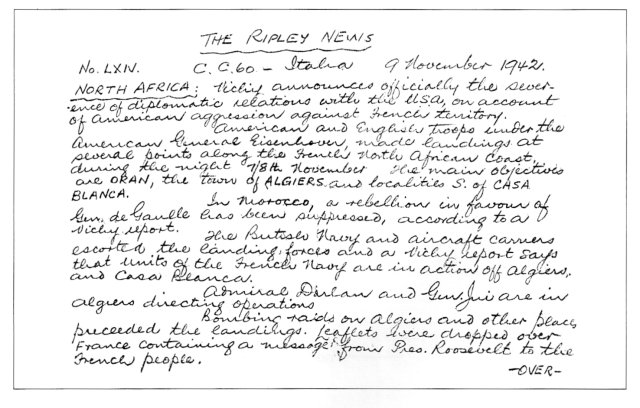 THE RIPLEY NEWS
No. LXIV. C. C. 60 - Italia 9 November 1942.
NORTH AFRICA: Vichy announces officially the sever-
ence of diplomatic relations with the USA, on account
of american aggression against French territory.
American and English troops under the
American General Eisenhover, made landings at
several points along the French North African Coast,
during the night 7/8th November The main objectives
are ORAN, the town of ALGIERS and localities S. of CASA
BLANCA.
In Morocco, a rebellion in favour of
Gen. de Gaulle has been suppressed, according to a
Vichy report.
The British Navy and aircraft carriers
escorted the landing forces and a Vichy report says
that units of the French Navy are in action off Algiers,
and Casa Blanca.
Admiral Darlan and Gen. Jui are in
algiers directing operations
Bombing raids on Algiers and other places
preceeded the landings. Leaflets were dropped over
France containing a message from Pres. Roosevelt to the
French people.
-OVER-